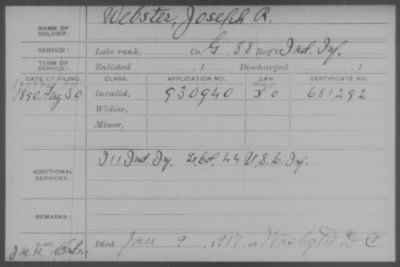 NAME OF SOLDIER: Webster, Joseph R.
SERVICE: Late rank, Co. G, 88 Ind. Inf.
TERM OF SERVICE: Enlisted , 1 Discharged , 1
DATE OF FILING. CLASS. APPLICATION NO. LAW. CERTIFICATE NO.
1890, Aug 30 Invalid, 930940 681292
Widow,
Minor,
ADDITIONAL SERVICES: I 11 Ind. Inf. 44 U.S.C. Inf.
REMARKS:
J.M.H. Died Jan 9, 1917, at D C